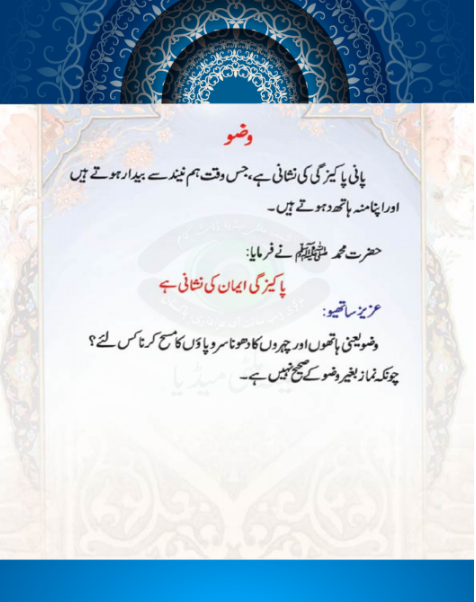 وضو
پانی پاکیزگی کی نشانی ہے، جس وقت ہم نیند سے بیدار ہوتے ہیں
اور اپنا منہ ہاتھ دہوتے ہیں۔
حضرت محمد ﷺ نے فرمایا:
پاکیزگی ایمان کی نشانی ہے
عزیز ساتھیو:
وضو یعنی ہاتھوں اور چہروں کا دھونا سر و پاؤں کا مسح کرنا کس لئے؟
چونکہ نماز بغیر وضو کے صحیح نہیں ہے۔